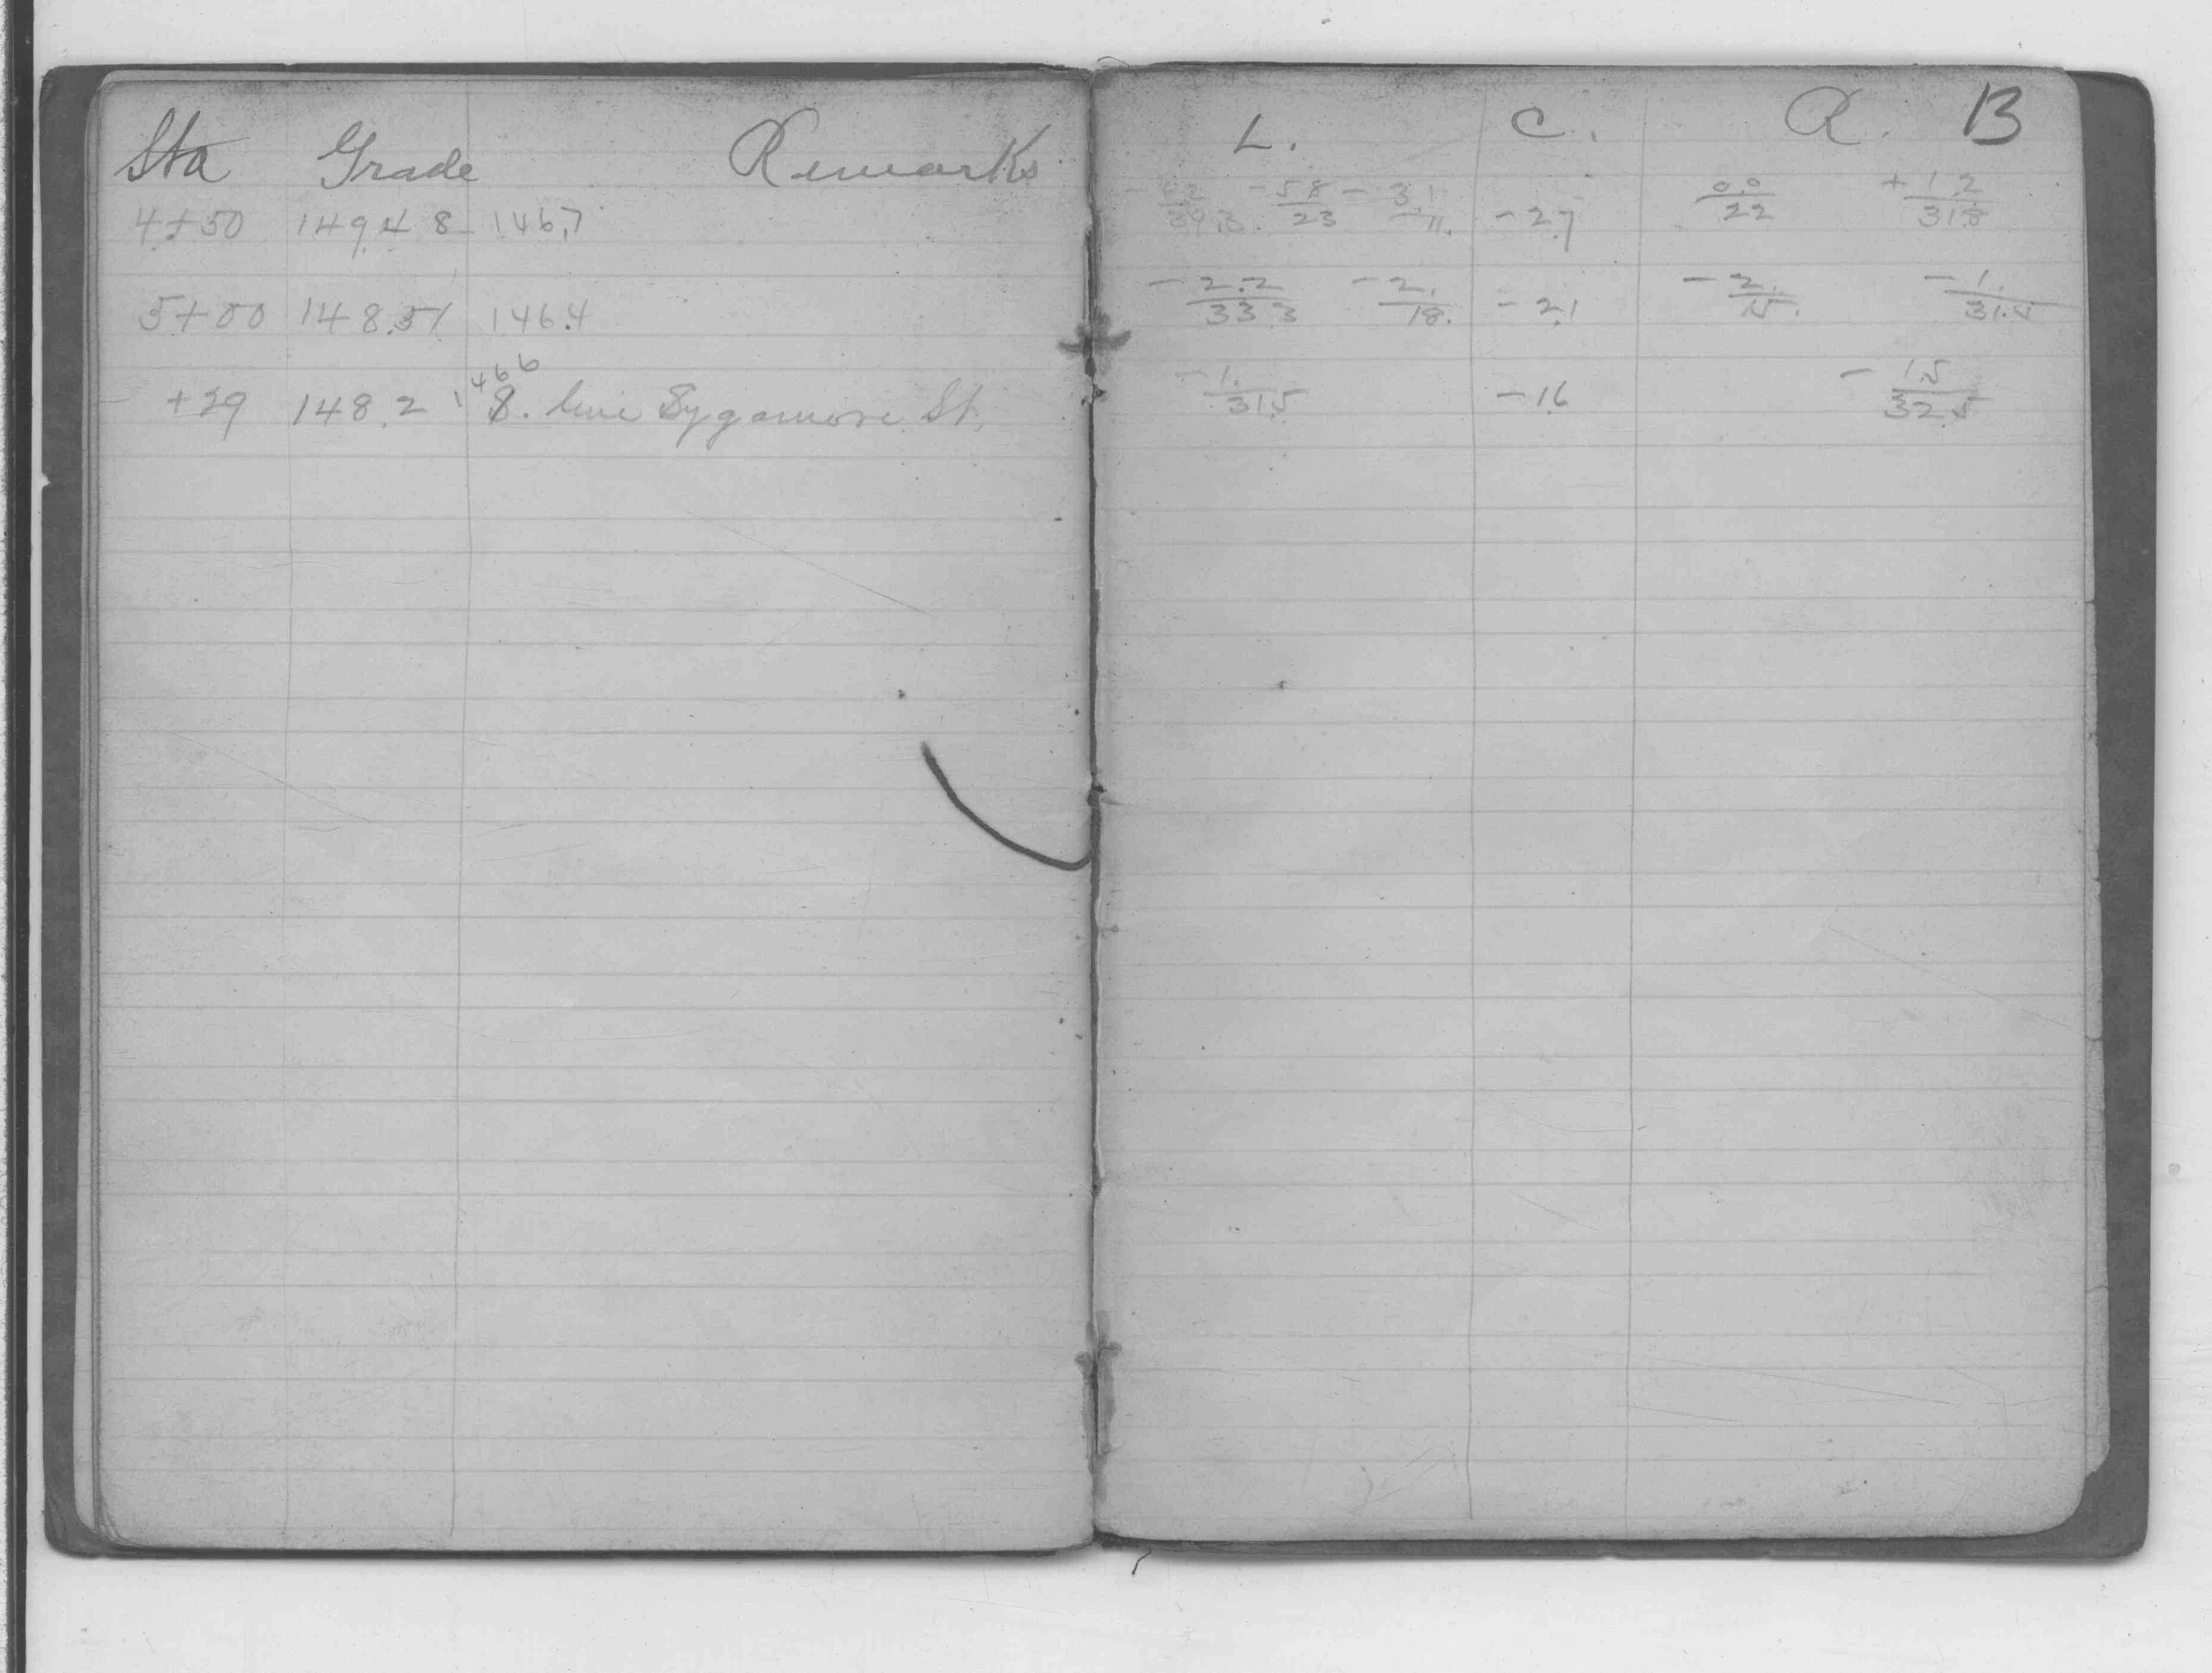 Sta Grade Remarks
4+50 149.48 146.7
5+00 148.51 146.4
+29 148.2 146.6 S. line Sygamore St.
L. C. R. 13
-6.2/39.3 -5.8/23 -3.1/11. -2.7 0.0/22 +1.2/31.8
-2.2/33.3 -2./18. -2.1 -2./15. -1./31.5
-1./31.5 -1.6 -1.5/32.5